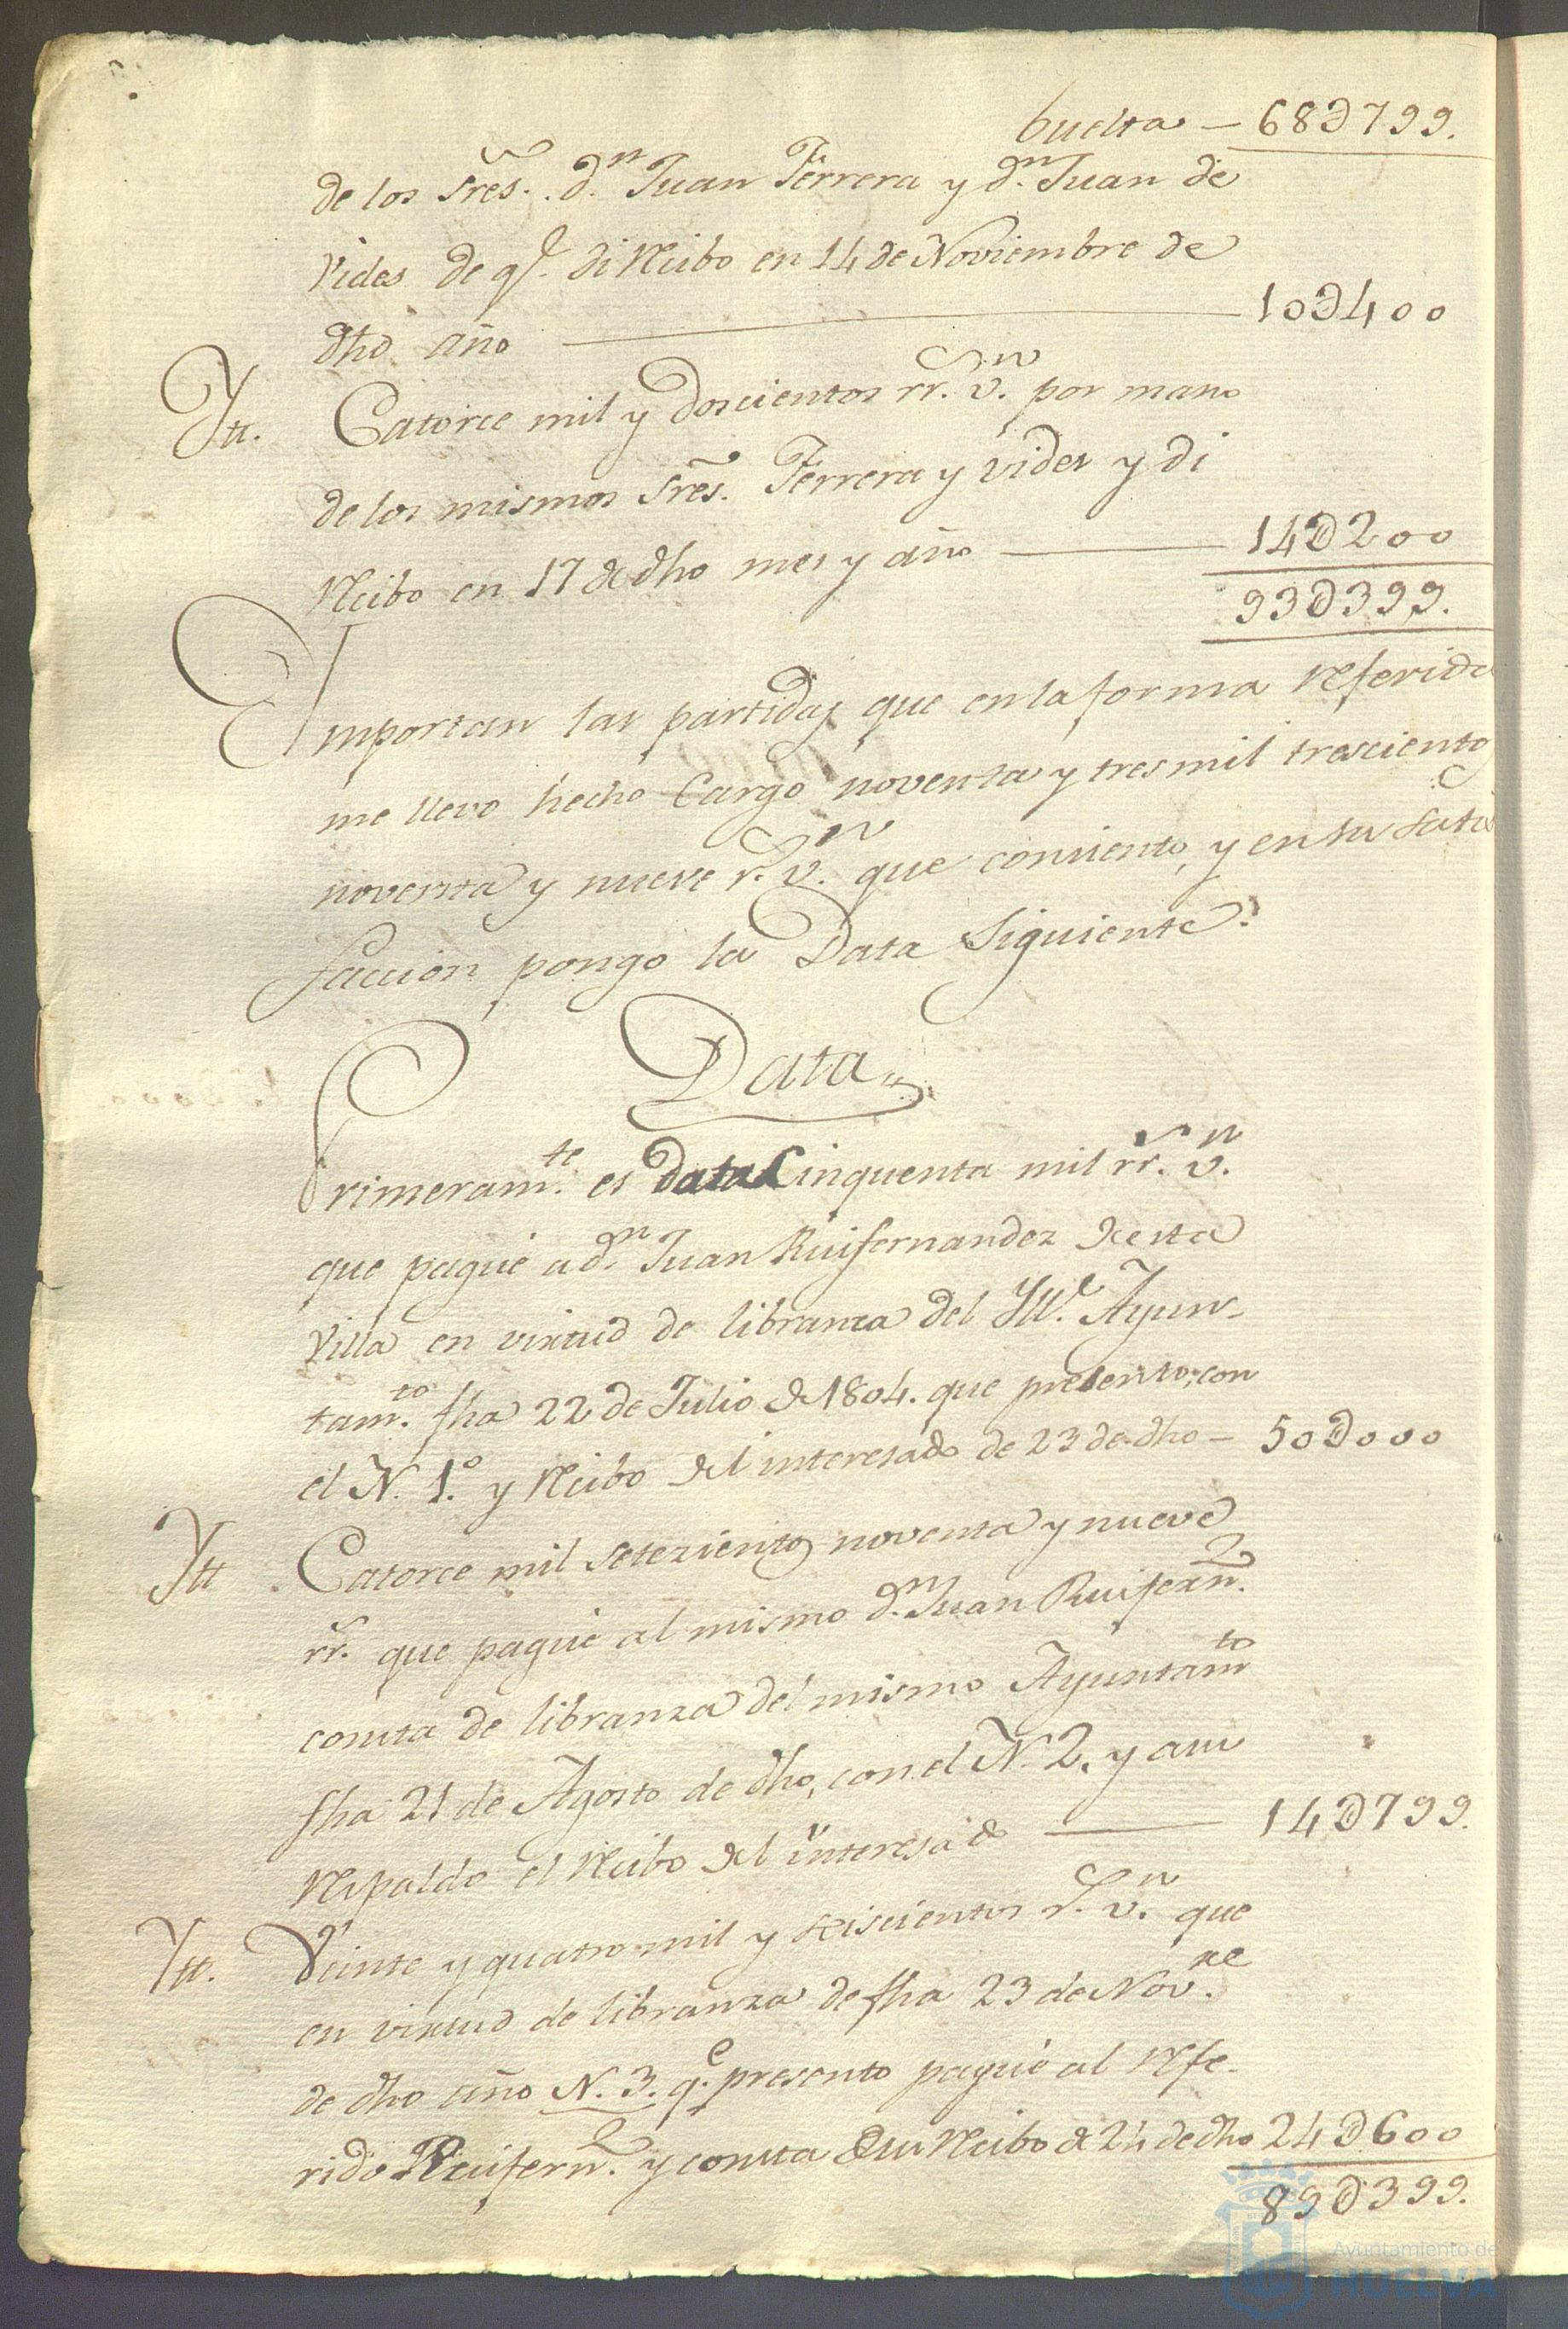 buelta — 68∂799.
de los Sres. dn. Juan Ferrera y dn. Juan de
Vides de qe. di Recibo en 14 de Noviembre de
dho año — 10∂400
Itt. Catorce mil y doscientos rr. vn. por mano
de los mismos Sres. Ferrera y Vides y di
Recibo en 17 de dho mes y año — 14∂200
93∂399.
Importan las partidas que en la forma referida
me llevo hecho Cargo noventa y tres mil trescientos
noventa y nueve r. vn. que consiento, y en su satis
faccion pongo la Data Siguiente.
Data
Primeramte. es data Cinquenta mil rr. vn.
que pagué a dn. Juan Ruifernandez de esta
Villa en virtud de libranza del Ille. Ayun-
tamto. fha 22 de Julio de 1804. que presento, con
el N. 1.º y Recibo del interesado de 23 de dho — 50∂000
Itt Catorce mil setezientos noventa y nueve
rr. que pagué al mismo dn. Juan Ruifern.
consta de libranza del mismo Ayuntamto
fha 21 de Agosto de dho, con el N. 2. y a su
Respaldo el Recibo del interesado — 14∂799.
Itt. Veinte y quatro mil y seiscientos r. vn. que
en virtud de libranza de fha 23 de Novre.
de dho año N. 3. qe. presento pagué al Refe-
rido Ruifern. y consta de su Recibo de 24 de dho 24∂600
89∂399.
Ayuntamiento de
HUELVA